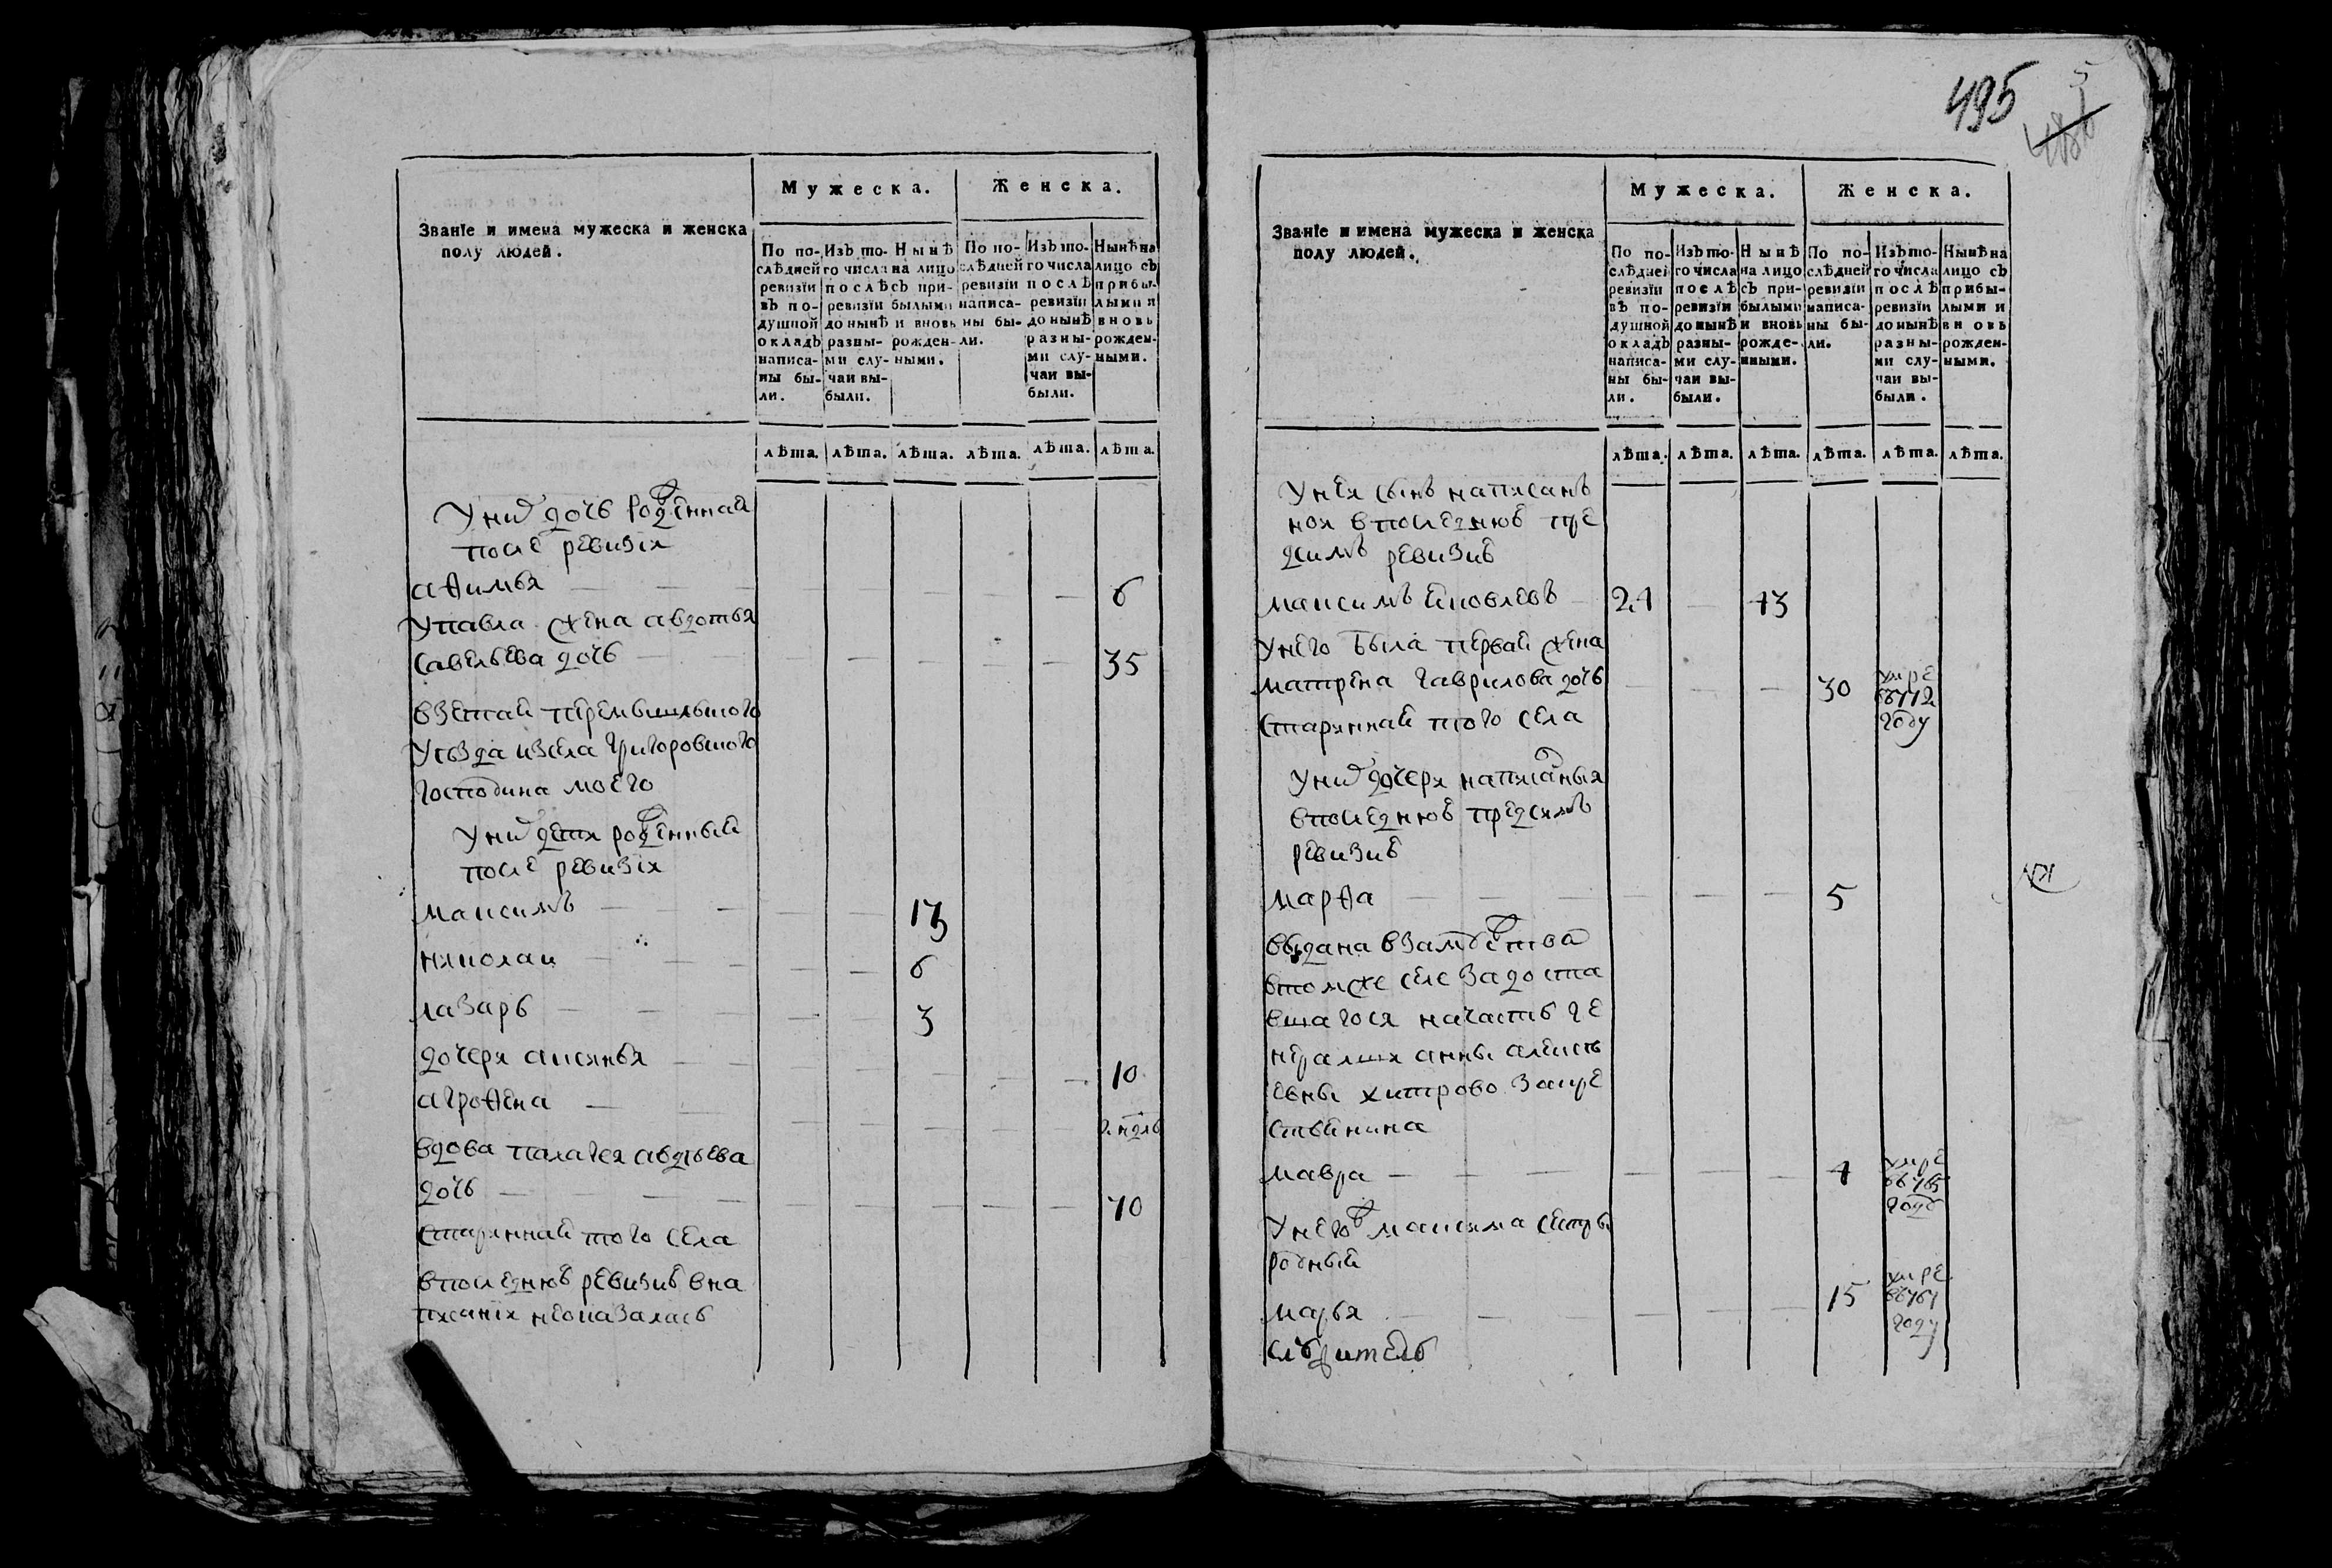 495
5
486
Званїе и имена мужеска и женска
полу людей.
Мужеска.
Женска.
По по-
слѣдней
ревизїи
въ по-
душной
окладъ
написа-
ны бы-
ли.
Изъ то-
го числа
послѣ
ревизїи
до нынѣ
разны-
ми слу-
чаи вы-
были.
Нынѣ
на лицо
съ при-
былыми
и вновь
рожден-
ными.
По по-
слѣдней
ревизїи
написа-
ны бы-
ли.
Изъ то-
го числа
послѣ
ревизїи
до нынѣ
разны-
ми слу-
чаи вы-
были.
Нынѣ на
лицо съ
прибы-
лыми и
вновь
рожден-
ными.
лѣта. лѣта. лѣта. лѣта. лѣта. лѣта.
У них дочь рожденная
после ревизiи
афимья 6
У павла жена авдотья
савельева дочь 35
взетая перемышльского
уезда изсела григоровского
господина моего
У них дети рожденный
после ревизiи
максимъ 13
николаи 6
лазарь 3
дочери аксинья 10
агрофена 2 недль
вдова палагея авдѣева
дочь 70
старинная того села
впоследнюю ревизию вна
писанiи непоказалась
Званїе и имена мужеска и женска
полу людей.
Мужеска.
Женска.
По по-
слѣдней
ревизїи
въ по-
душной
окладъ
написа-
ны бы-
ли.
Изъ то-
го числа
послѣ
ревизїи
до нынѣ
разны-
ми слу-
чаи вы-
были.
Нынѣ
на лицо
съ при-
былыми
и вновь
рожде-
нными.
По по-
слѣдней
ревизїи
написа-
ны бы-
ли.
Изъ то-
го числа
послѣ
ревизїи
до нынѣ
разны-
ми слу-
чаи вы-
были.
Нынѣ на
лицо съ
прибы-
лыми и
вновь
рожден-
ными.
лѣта. лѣта. лѣта. лѣта. лѣта. лѣта.
У нея сынъ написанъ
ной впоследнюю пре
дсимъ ревизию
максимъ яковлевъ 21 43
У него была первая жена
матрена гаврилова дочь 30 умре
в 772
году
старинная того села
У них дочери написаныя
впоследнюю предсимъ
ревизию
марфа 5
выдана взамужства
втомже селе за доста
вшагося начасть ге
неральши анны алексѣ
евны хитрово за кре
стьянина
мавра 1 умре
в 765
году
У него ж максима сестры
родный
марья 15 умре
в 767
году